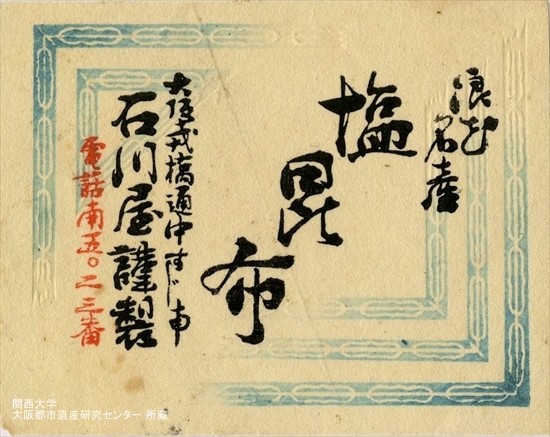 浪花名産
塩昆布
大阪戎橋通中すじ南
石川屋謹製
電話南五〇二三番
関西大学
大阪都市遺産研究センター 所蔵